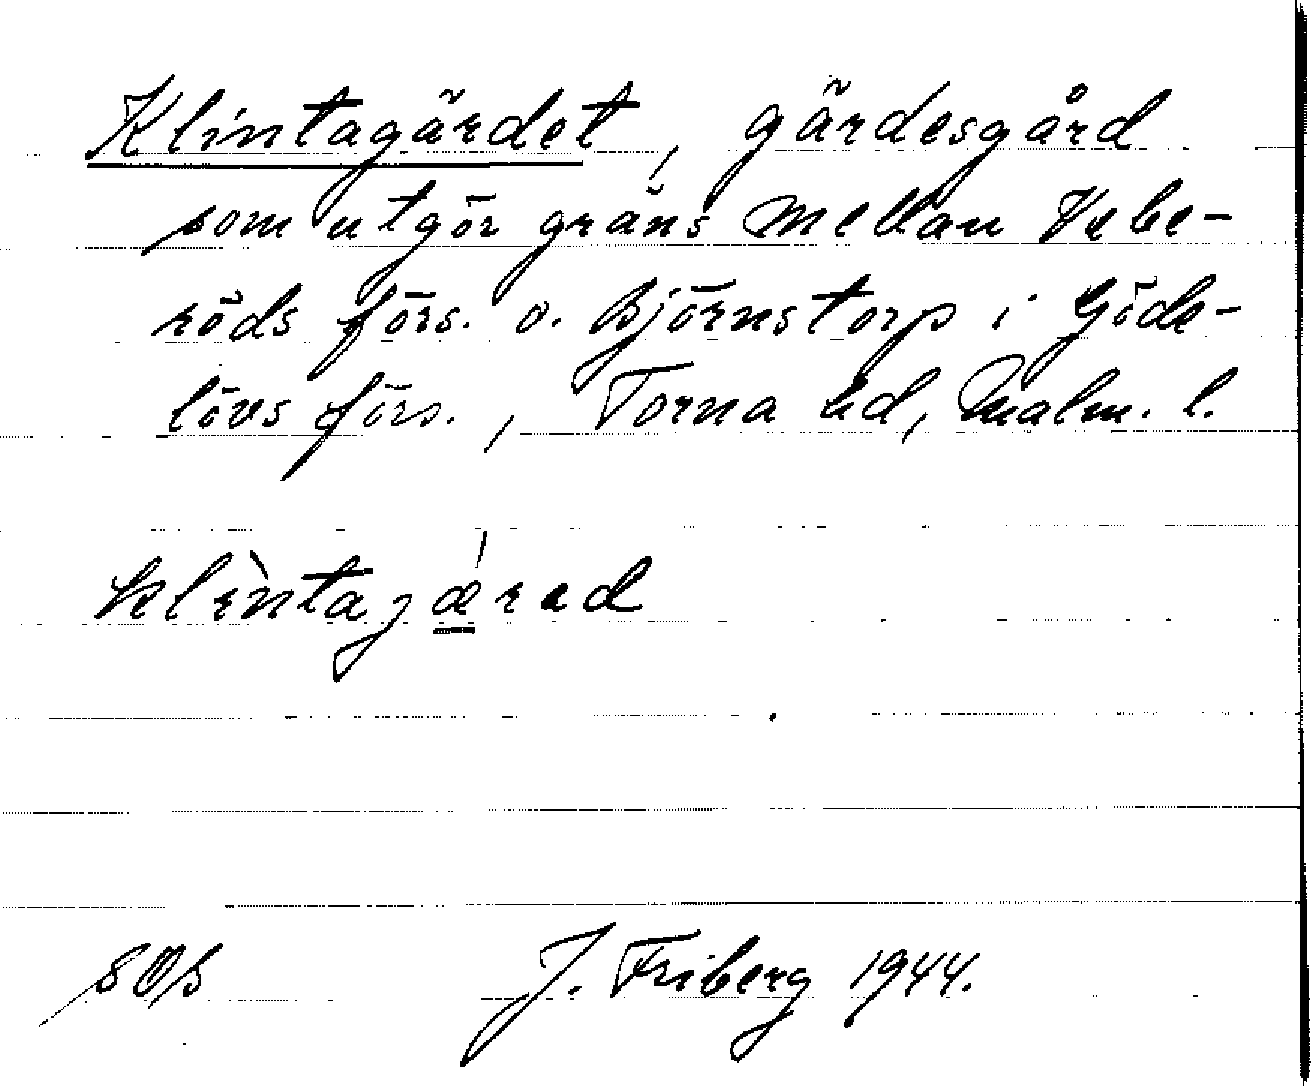 Klintagärdet, gärdesgård
som utgör gräns mellan Vebe-
röds förs. o. Björnstorp i Göde-
lövs förs., Torna hd, Malm. l.
klìntajǽred
J. Friberg 1944.